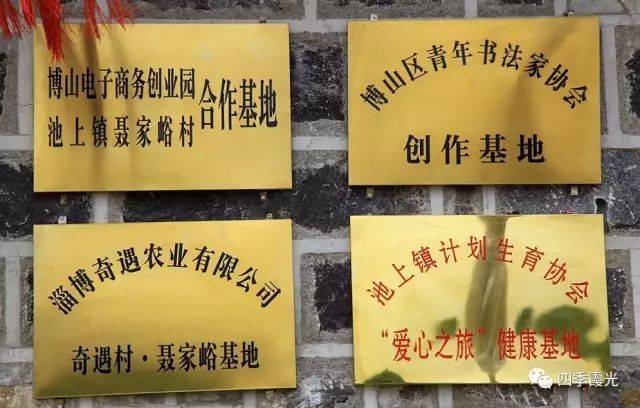 博山电子商务创业园
池上镇聂家峪村
合作基地
博山区青年书法家协会
创作基地
淄博奇遇农业有限公司
奇遇村·聂家峪基地
池上镇计划生育协会
“爱心之旅”健康基地
四季霞光